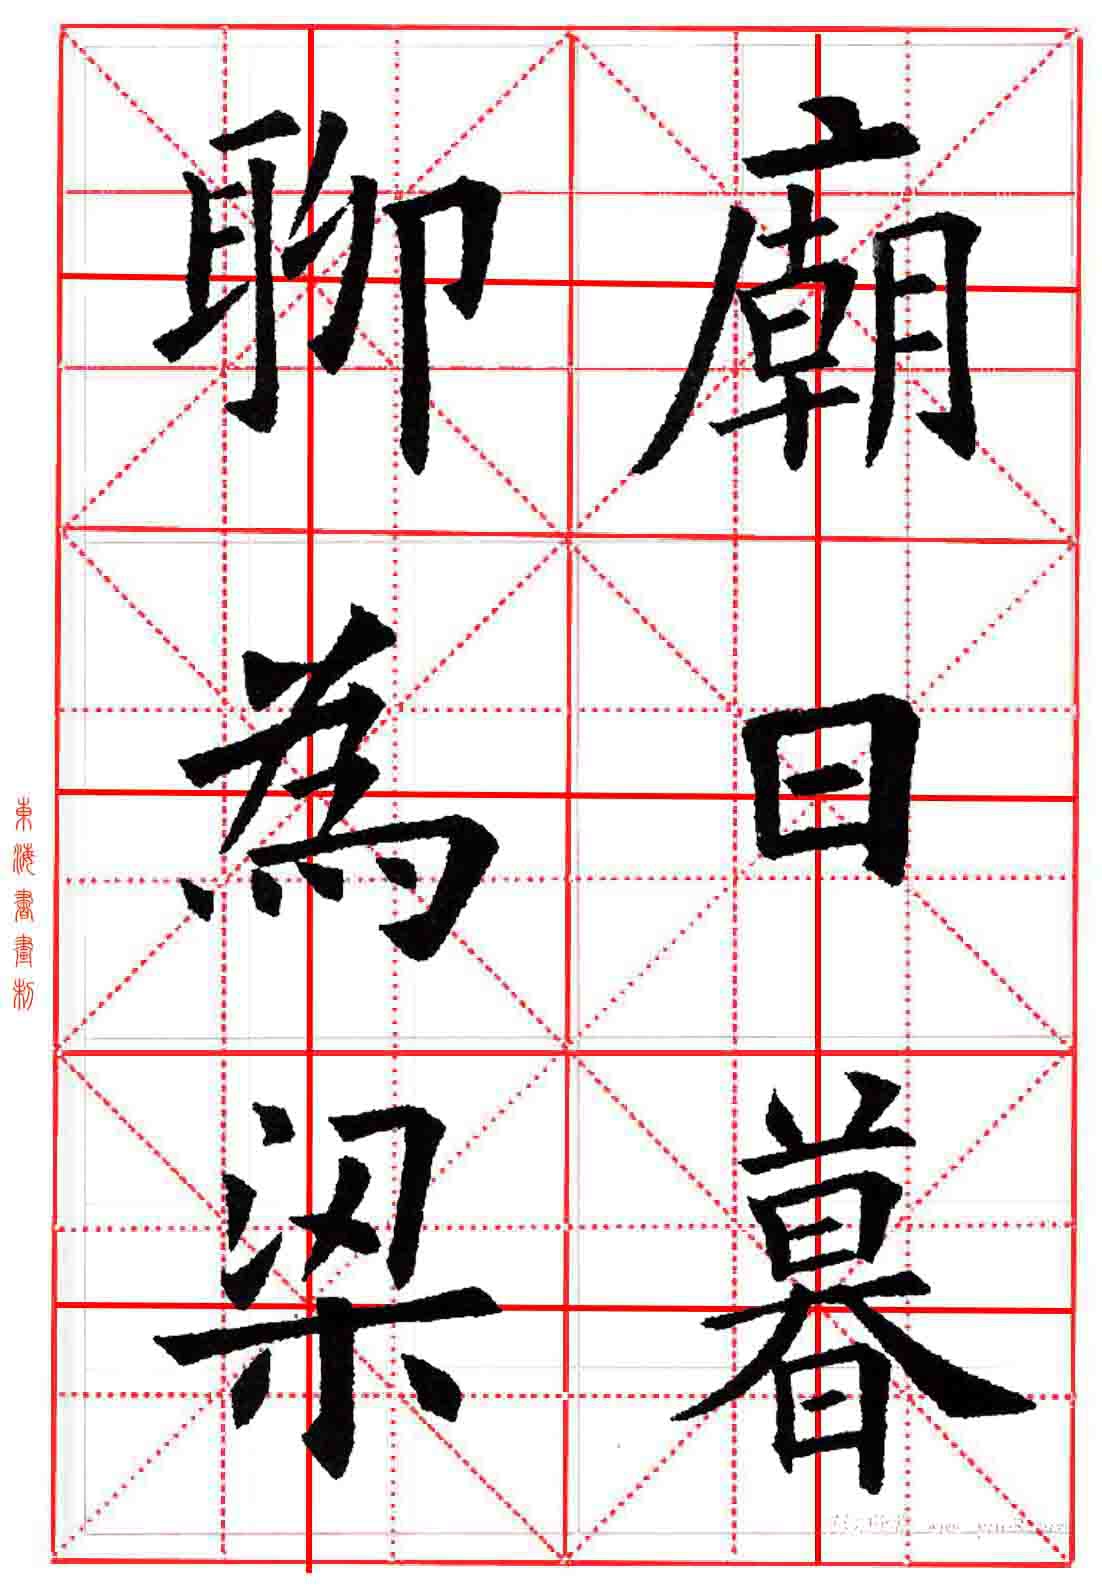 廟日暮
聊為梁
東海書畫制